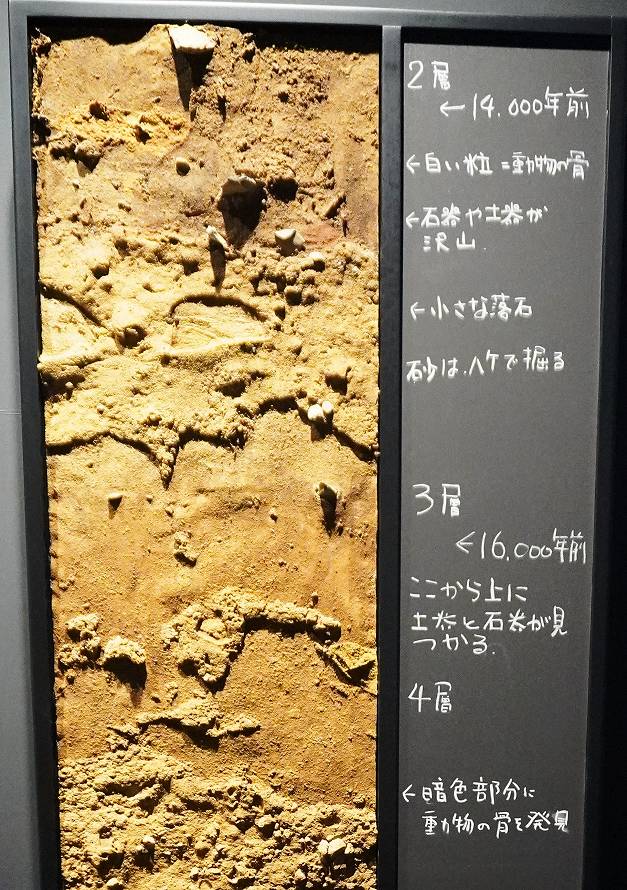 2層
←14,000年前
←白い粒=動物の骨
←石器や土器が
沢山.
←小さな落石
砂は、ハケで掘る
3層
←16,000年前
ここから上に
土器と石器が見
つかる.
4層
←暗色部分に
動物の骨を発見